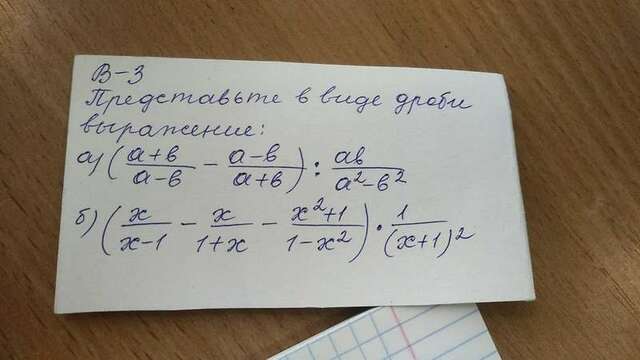 В-3
Представьте в виде дроби
выражение:
а) ((a+b)/(a-b) - (a-b)/(a+b)) : ab/(a²-b²)
б) (x/(x-1) - x/(1+x) - (x²+1)/(1-x²)) · 1/(x+1)²